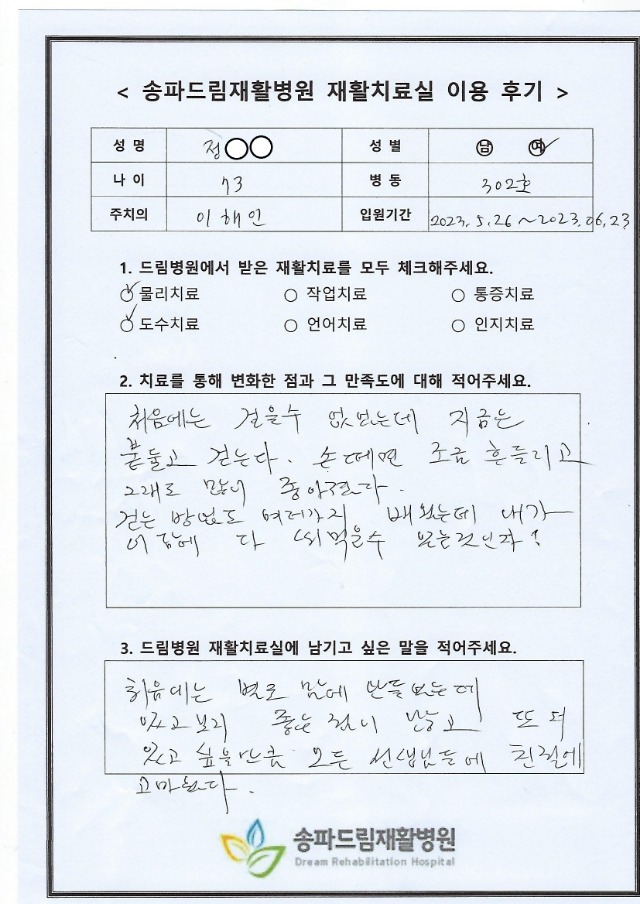 < 송파드림재활병원 재활치료실 이용 후기 >
성 명 정○○ 성 별 남 여
나 이 73 병 동 302호
주치의 이해인 입원기간 2023. 5. 26 ~ 2023. 06. 23
1. 드림병원에서 받은 재활치료를 모두 체크해주세요.
○ 물리치료 ○ 작업치료 ○ 통증치료
○ 도수치료 ○ 언어치료 ○ 인지치료
2. 치료를 통해 변화한 점과 그 만족도에 대해 적어주세요.
처음에는 걸을수 없었는데 지금은
붙들고 걷는다. 손떼면 조금 흔들리고
그래도 많이 좋아졌다.
걷는 방법도 여러가지 배웠는데 내가
다 써먹을수 있는것인자?
3. 드림병원 재활치료실에 남기고 싶은 말을 적어주세요.
처음에는 별로 맘에 안들었는데
있고보니 좋은 점이 많고 또 더
있고 싶을만큼 모든 선생님들에 친절에
고마웠다.
송파드림재활병원
Dream Rehabilitation Hospital